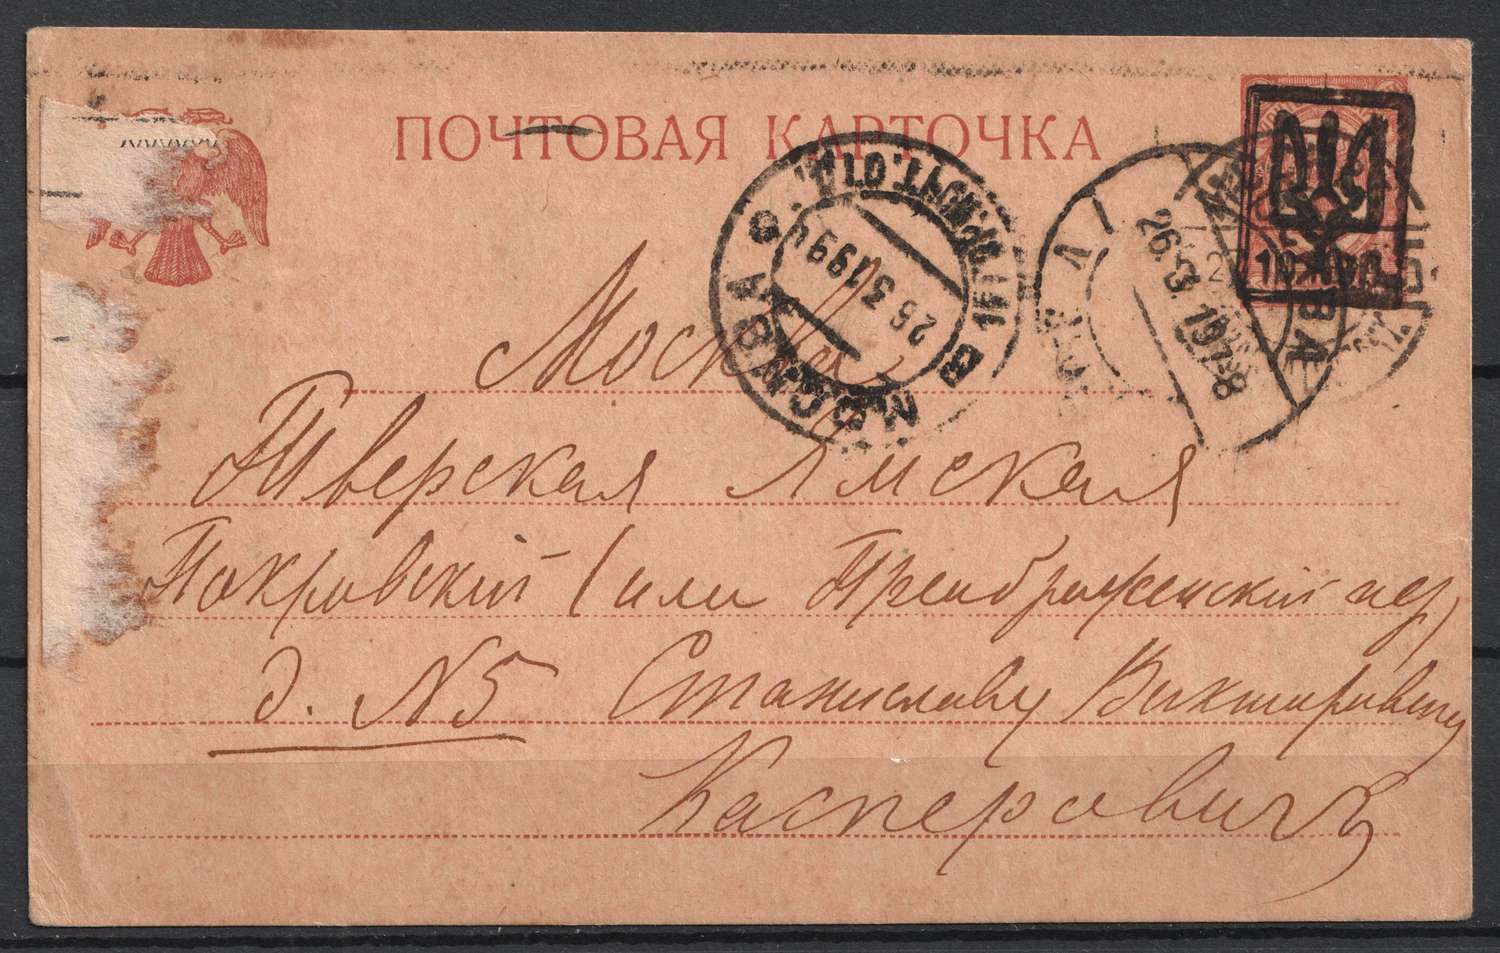 ПОЧТОВАЯ КАРТОЧКА
МОСКВА
26.3.19
26.3.19
Москва
Тверская Ямская
Покровскій (или Преображенскій пер)
д. №5 Станиславу Викторовичу
Касперовичъ